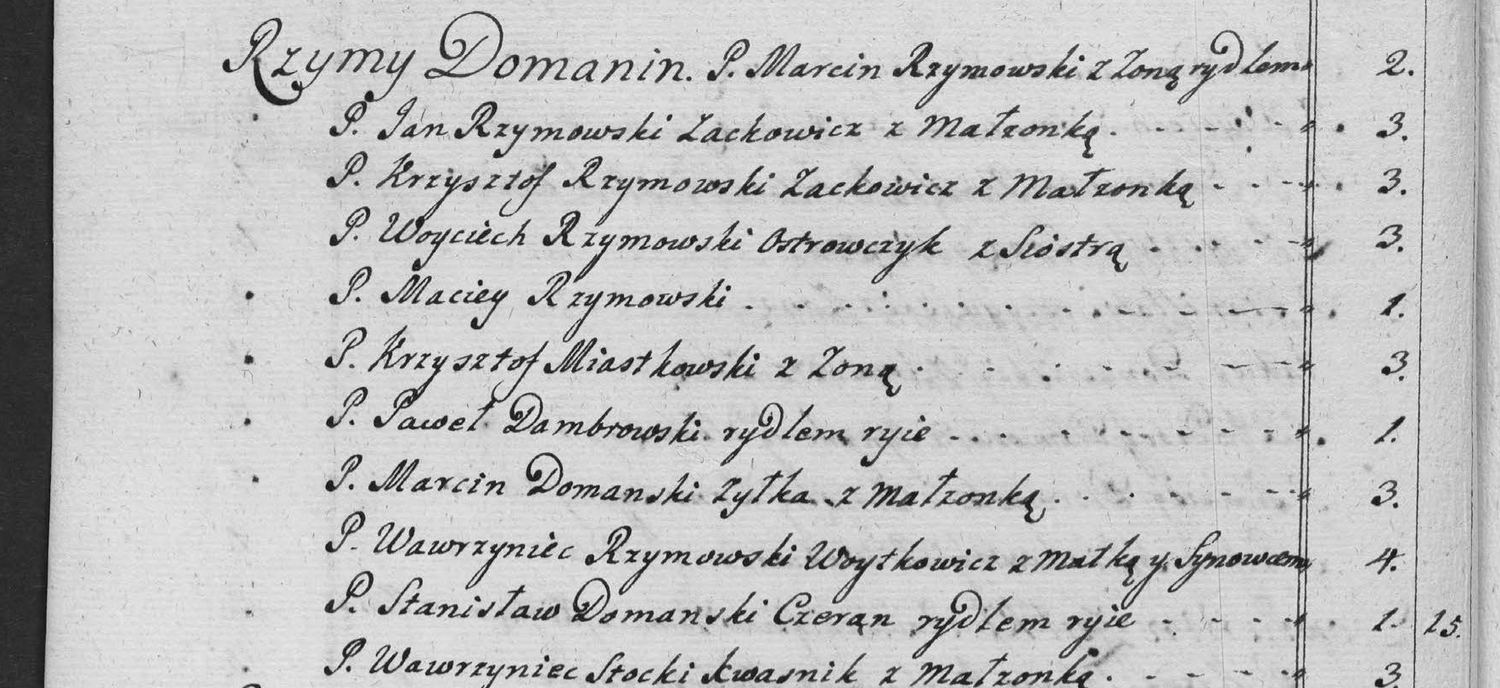 Rzymy Domanin. P. Marcin Rzymowski z Zoną rydlem 2.
P. Jan Rzymowski Zackowicz z Małzonką. 3.
P. Krzysztof Rzymowski Zackowicz z Małzonką 3.
P. Woyciech Rzymowski Ostrowczyk z Siostrą 3.
P. Maciey Rzymowski 1.
P. Krzysztof Miastkowski z Zoną 3.
P. Paweł Dambrowski rydlem ryie 1.
P. Marcin Domanski Zyłka z Małzonką 3.
P. Wawrzyniec Rzymowski Woytkowicz z Matką y Synowcem 4.
P. Stanisław Domanski Czeran rydlem ryie 1. 15.
P. Wawrzyniec Stocki kwasnik z Małzonką. 3.